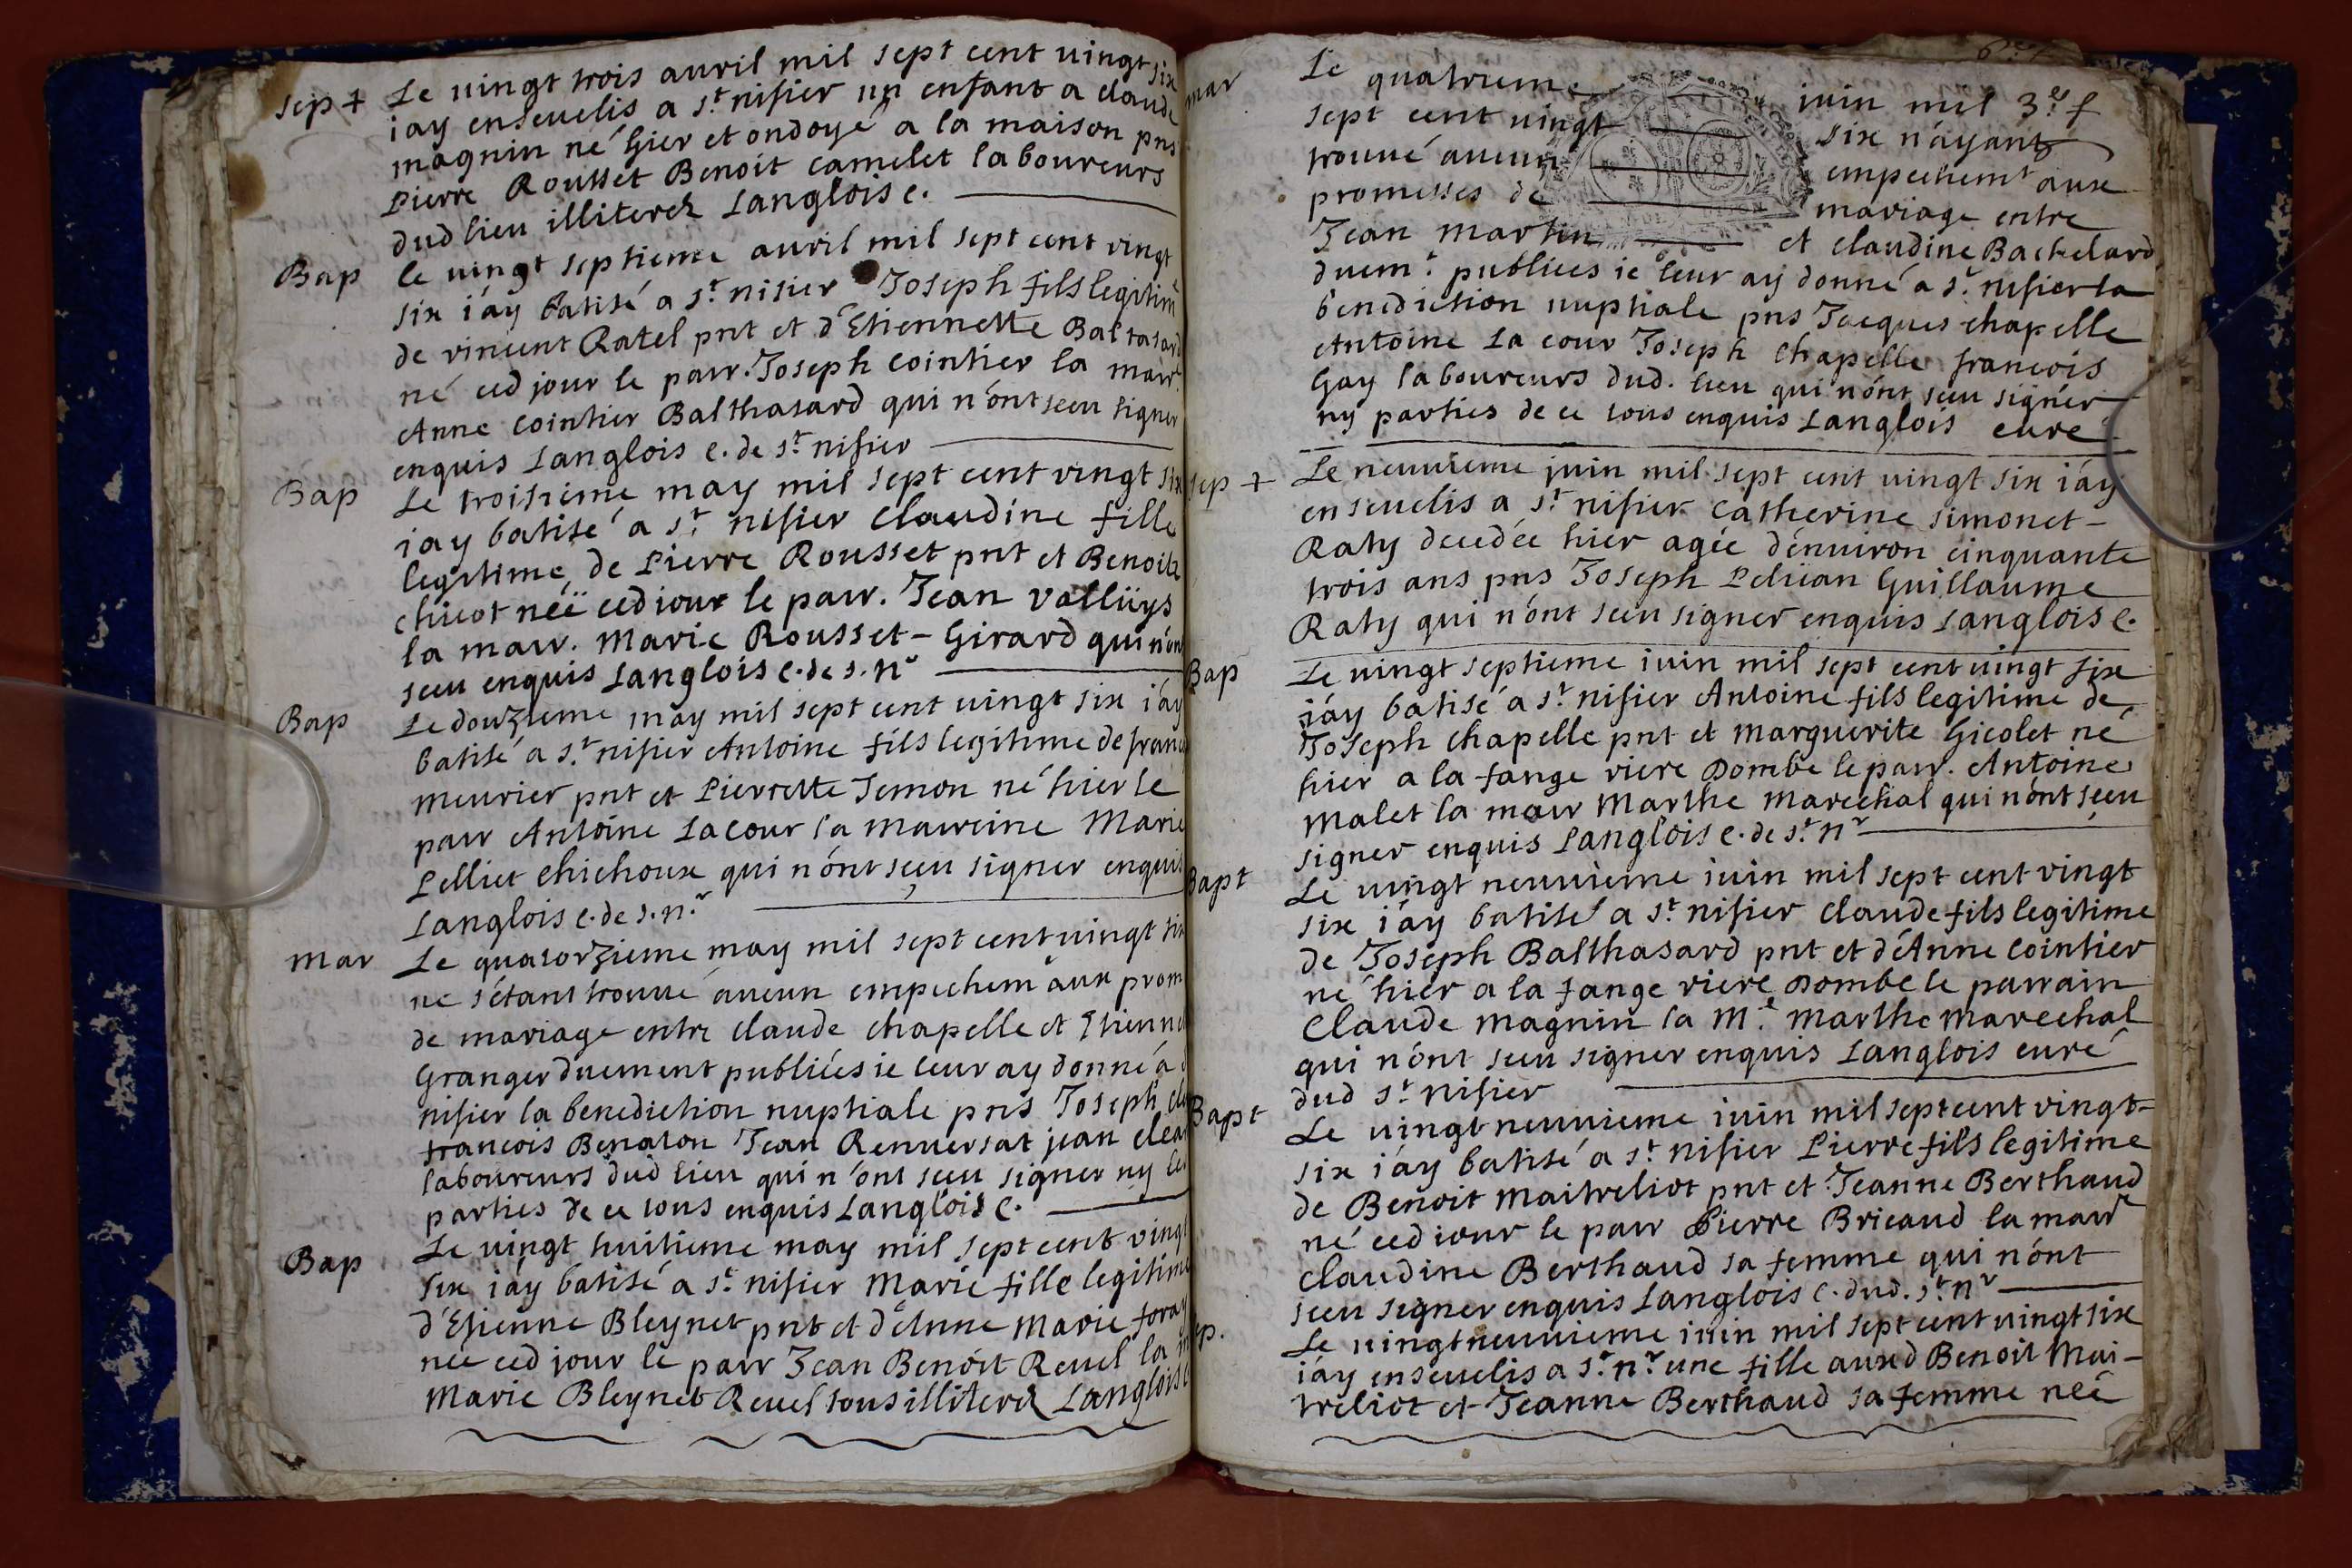 sep + Le vingt trois auril mil sept cent vingt six
iay enseuelis a s.t nisier un enfant a claude
magnin né hier et ondoyé a la maison pns
Pierre Rousset Benoit camelet laboureurs
dud lieu illiterez Langlois c.
Bap le vingt septieme auril mil sept cent vingt
six i'ay batisé a s.t nisier Joseph fils legitime
de vincent Ratel pnt et d'Etiennette Baltasard
né ced jour le parr. Joseph cointier la marr.
Anne cointier Balthasard qui n'ont sceu signer
enquis Langlois c. de s.t nisier
Bap Le troisieme may mil sept cent vingt six
iay batisé a s.t nisier Claudine fille
legitime de Pierre Rousset pnt et Benoite
chicot néë ced iour le parr. Jean valluys
la marr. Marie Rousset - Girard qui n'ont
sceu enquis Langlois c. de s. n.r
Bap Le douzieme may mil sept cent vingt six i'ay
batisé a s.t nisier Antoine fils legitime de francois
meurier pnt et Pierrette Jemon né hier le
parr Antoine Lacour la marreine Marie
Pelliet chichoux qui n'ont sceu signer enquis
Langlois c. de s. n.r
mar Le quatorzieme may mil sept cent vingt six
ne s'étant trouué aucun empechem aux prom
de mariage entre claude chapelle et Etienne
Granger duement publiées ie leur ay donné a
nisier la benediction nuptiale pns Joseph
francois Benaton Jean Renuersat jean
laboureurs dud lieu qui n'ont sceu signer ny les
parties de ce tous enquis Langlois c.
Bap Le vingt huitieme may mil sept cent vingt
six i'ay batisé a s.t nisier Marie fille legitime
d'Etienne Bleynet pnt et d'Anne Marie foray
née ced jour le parr Jean Benoit Reuel la
Marie Bleynet Reuel tous illiterez Langlois
3.e f
mar Le quatrieme juin mil
sept cent vingt six n'ayant
trouué aucun empechem.t aux
promesses de mariage entre
Jean martin et claudine Bachelard
duem.t publiées ie leur ay donné a s.t nisier la
benediction nuptiale pns Jacques chapelle
Antoine La cour Joseph chapelle francois
Gay laboureurs dud. lieu qui n'ont sceu signér
ny parties de ce tous enquis Langlois curé
sep + Le neuuieme juin mil sept cent vingt six i'ay
enseuelis a s.t nisier Catherine simonet -
Raty decedée hier agée d'enuiron cinquante
trois ans pns Joseph Guillaume
Raty qui n'ont sceu signer enquis Langlois c.
Bap Le vingt septieme iuin mil sept cent vingt six
i'ay batisé a s.t nisier Antoine fils legitime de
Joseph chapelle pnt et marguerite Gicolet né
hier a la fange riere Dombe le parr. Antoine
malet la marr Marthe marechal qui n'ont sceu
signer enquis Langlois c. de s.t n.r
Bapt Le vingt neuuieme iuin mil sept cent vingt
six i'ay batisé a s.t nisier claude fils legitime
de Joseph Balthasard pnt et d'Anne cointier
né hier a la fange riere Dombe le parrain
Claude magnin la M.e marthe marechal
qui n'ont sceu signer enquis Langlois curé
dud s.t nisier
Bapt Le vingt neuuieme iuin mil sept cent vingt-
six i'ay batisé a s.t nisier Pierre fils legitime
de Benoit maitreliot pnt et Jeanne Berthaud
né ced iour le parr Pierre Bricaud la marr
claudine Berthaud sa femme qui n'ont
sceu signer enquis Langlois c. dud. s.t n.r
sep. Le vingt neuuieme iuin mil sept cent vingt six
i'ay enseuelis a s.t n.r une fille auxd Benoit Mai-
treliot et Jeanne Berthaud sa femme née